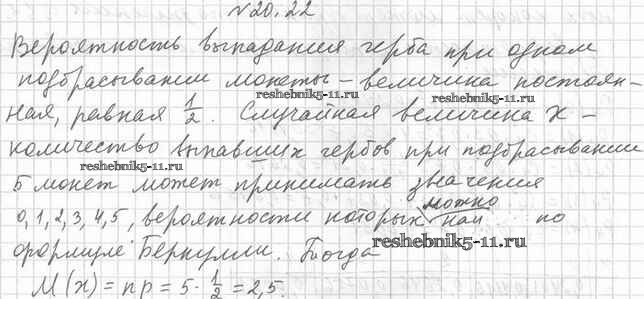 №20.22
Вероятность выпадания герба при одном
подбрасывании монеты – величина постоян-
reshebnik5-11.ru reshebnik5-11.ru
ная, равная 1/2. Случайная величина X –
количество выпавших гербов при подбрасывании
reshebnik5-11.ru
5 монет может принимать значения
можно
0, 1, 2, 3, 4, 5, вероятности которых най по
формуле Бернулли. Тогда
reshebnik5-11.ru
M(x) = np = 5 · 1/2 = 2,5.